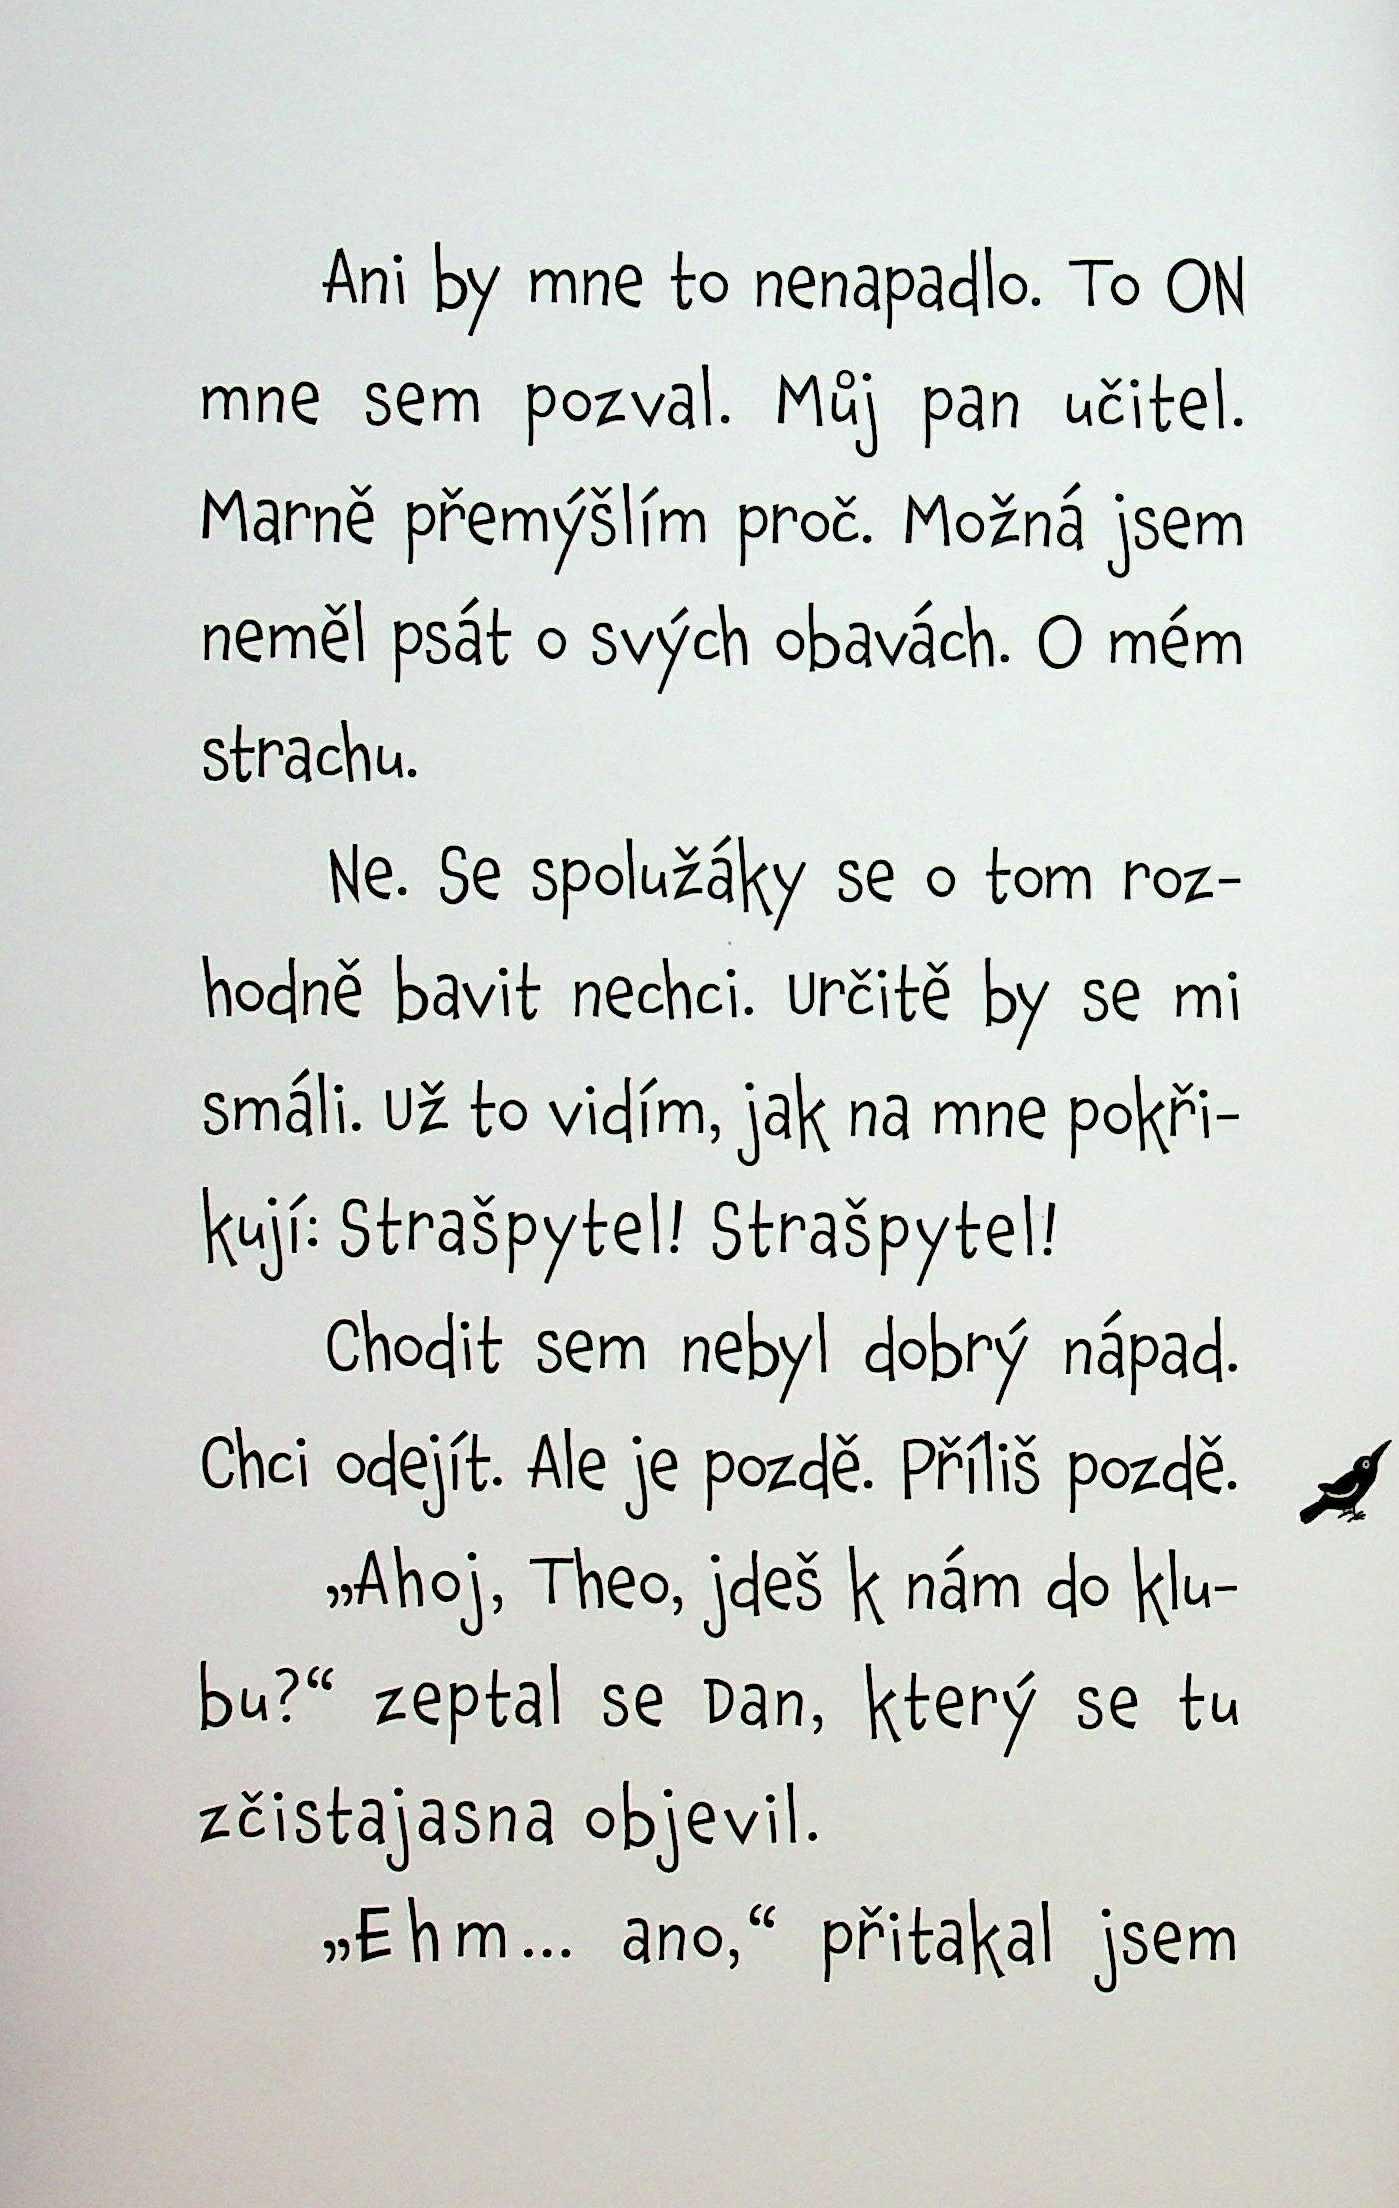 Ani by mne to nenapadlo. To ON
mne sem pozval. Můj pan učitel.
Marně přemýšlím proč. Možná jsem
neměl psát o svých obavách. O mém
strachu.
Ne. Se spolužáky se o tom roz-
hodně bavit nechci. Určitě by se mi
smáli. Už to vidím, jak na mne pokři-
kují: Strašpytel! Strašpytel!
Chodit sem nebyl dobrý nápad.
Chci odejít. Ale je pozdě. Příliš pozdě.
„Ahoj, Theo, jdeš k nám do klu-
bu?“ zeptal se Dan, který se tu
zčistajasna objevil.
„Ehm... ano,“ přitakal jsem